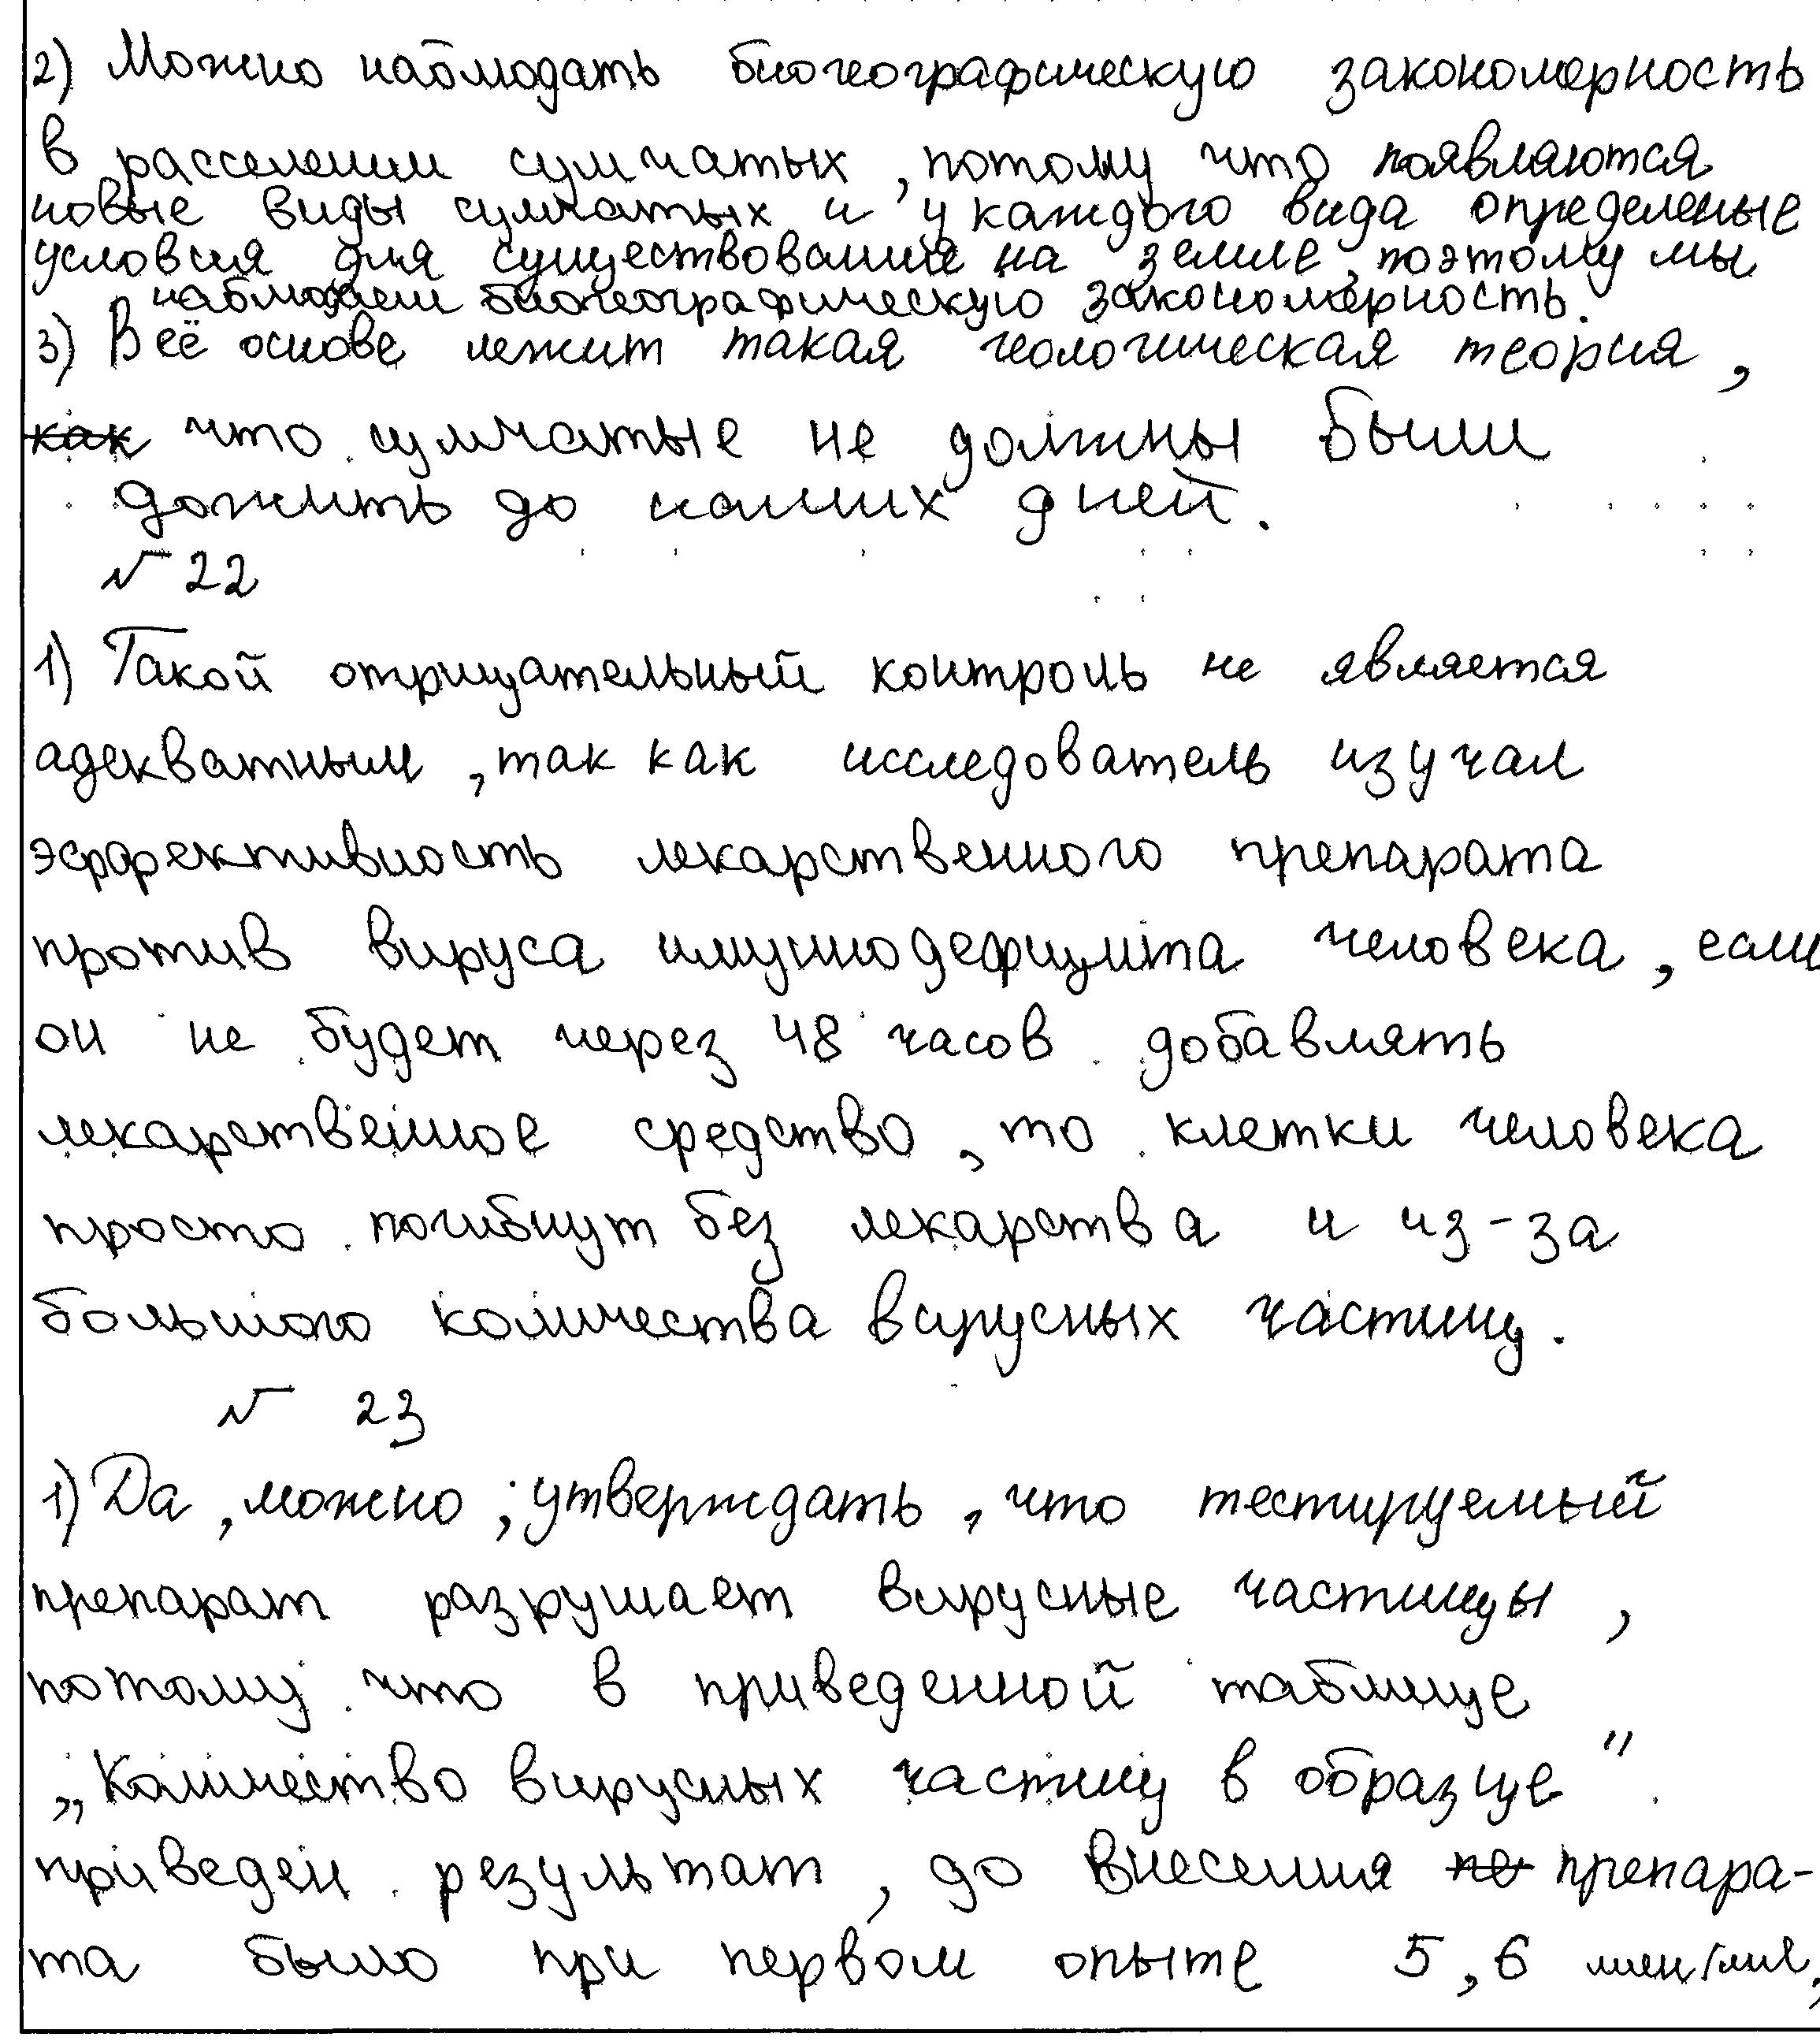 2) Можно наблюдать биогеографическую закономерность
в расселении сумчатых, потому что появляются
новые виды сумчатых и у каждого вида определеные
условия для существования на земле, поэтому мы
наблюдаем биогеографическую закономерность.
3) В её основе лежит такая геологическая теория,
как что сумчатые не должны были
дожить до наших дней.
№ 22
1) Такой отрицательный контроль не является
адекватным, так как исследователь изучал
эффективность лекарственного препарата
против вируса имунодефицита человека, если
он не будет через 48 часов добавлять
лекарственное средство, то клетки человека
просто погибнут без лекарства и из-за
большого количества вирусных частиц.
№ 23
1) Да, можно, утверждать, что тестируемый
препарат разрушает вирусные частицы,
потому что в приведенной таблице
„Количество вирусных частиц в образце"
приведен результат, до внесения по препара-
та было при первом опыте 5,6 млн/мл,